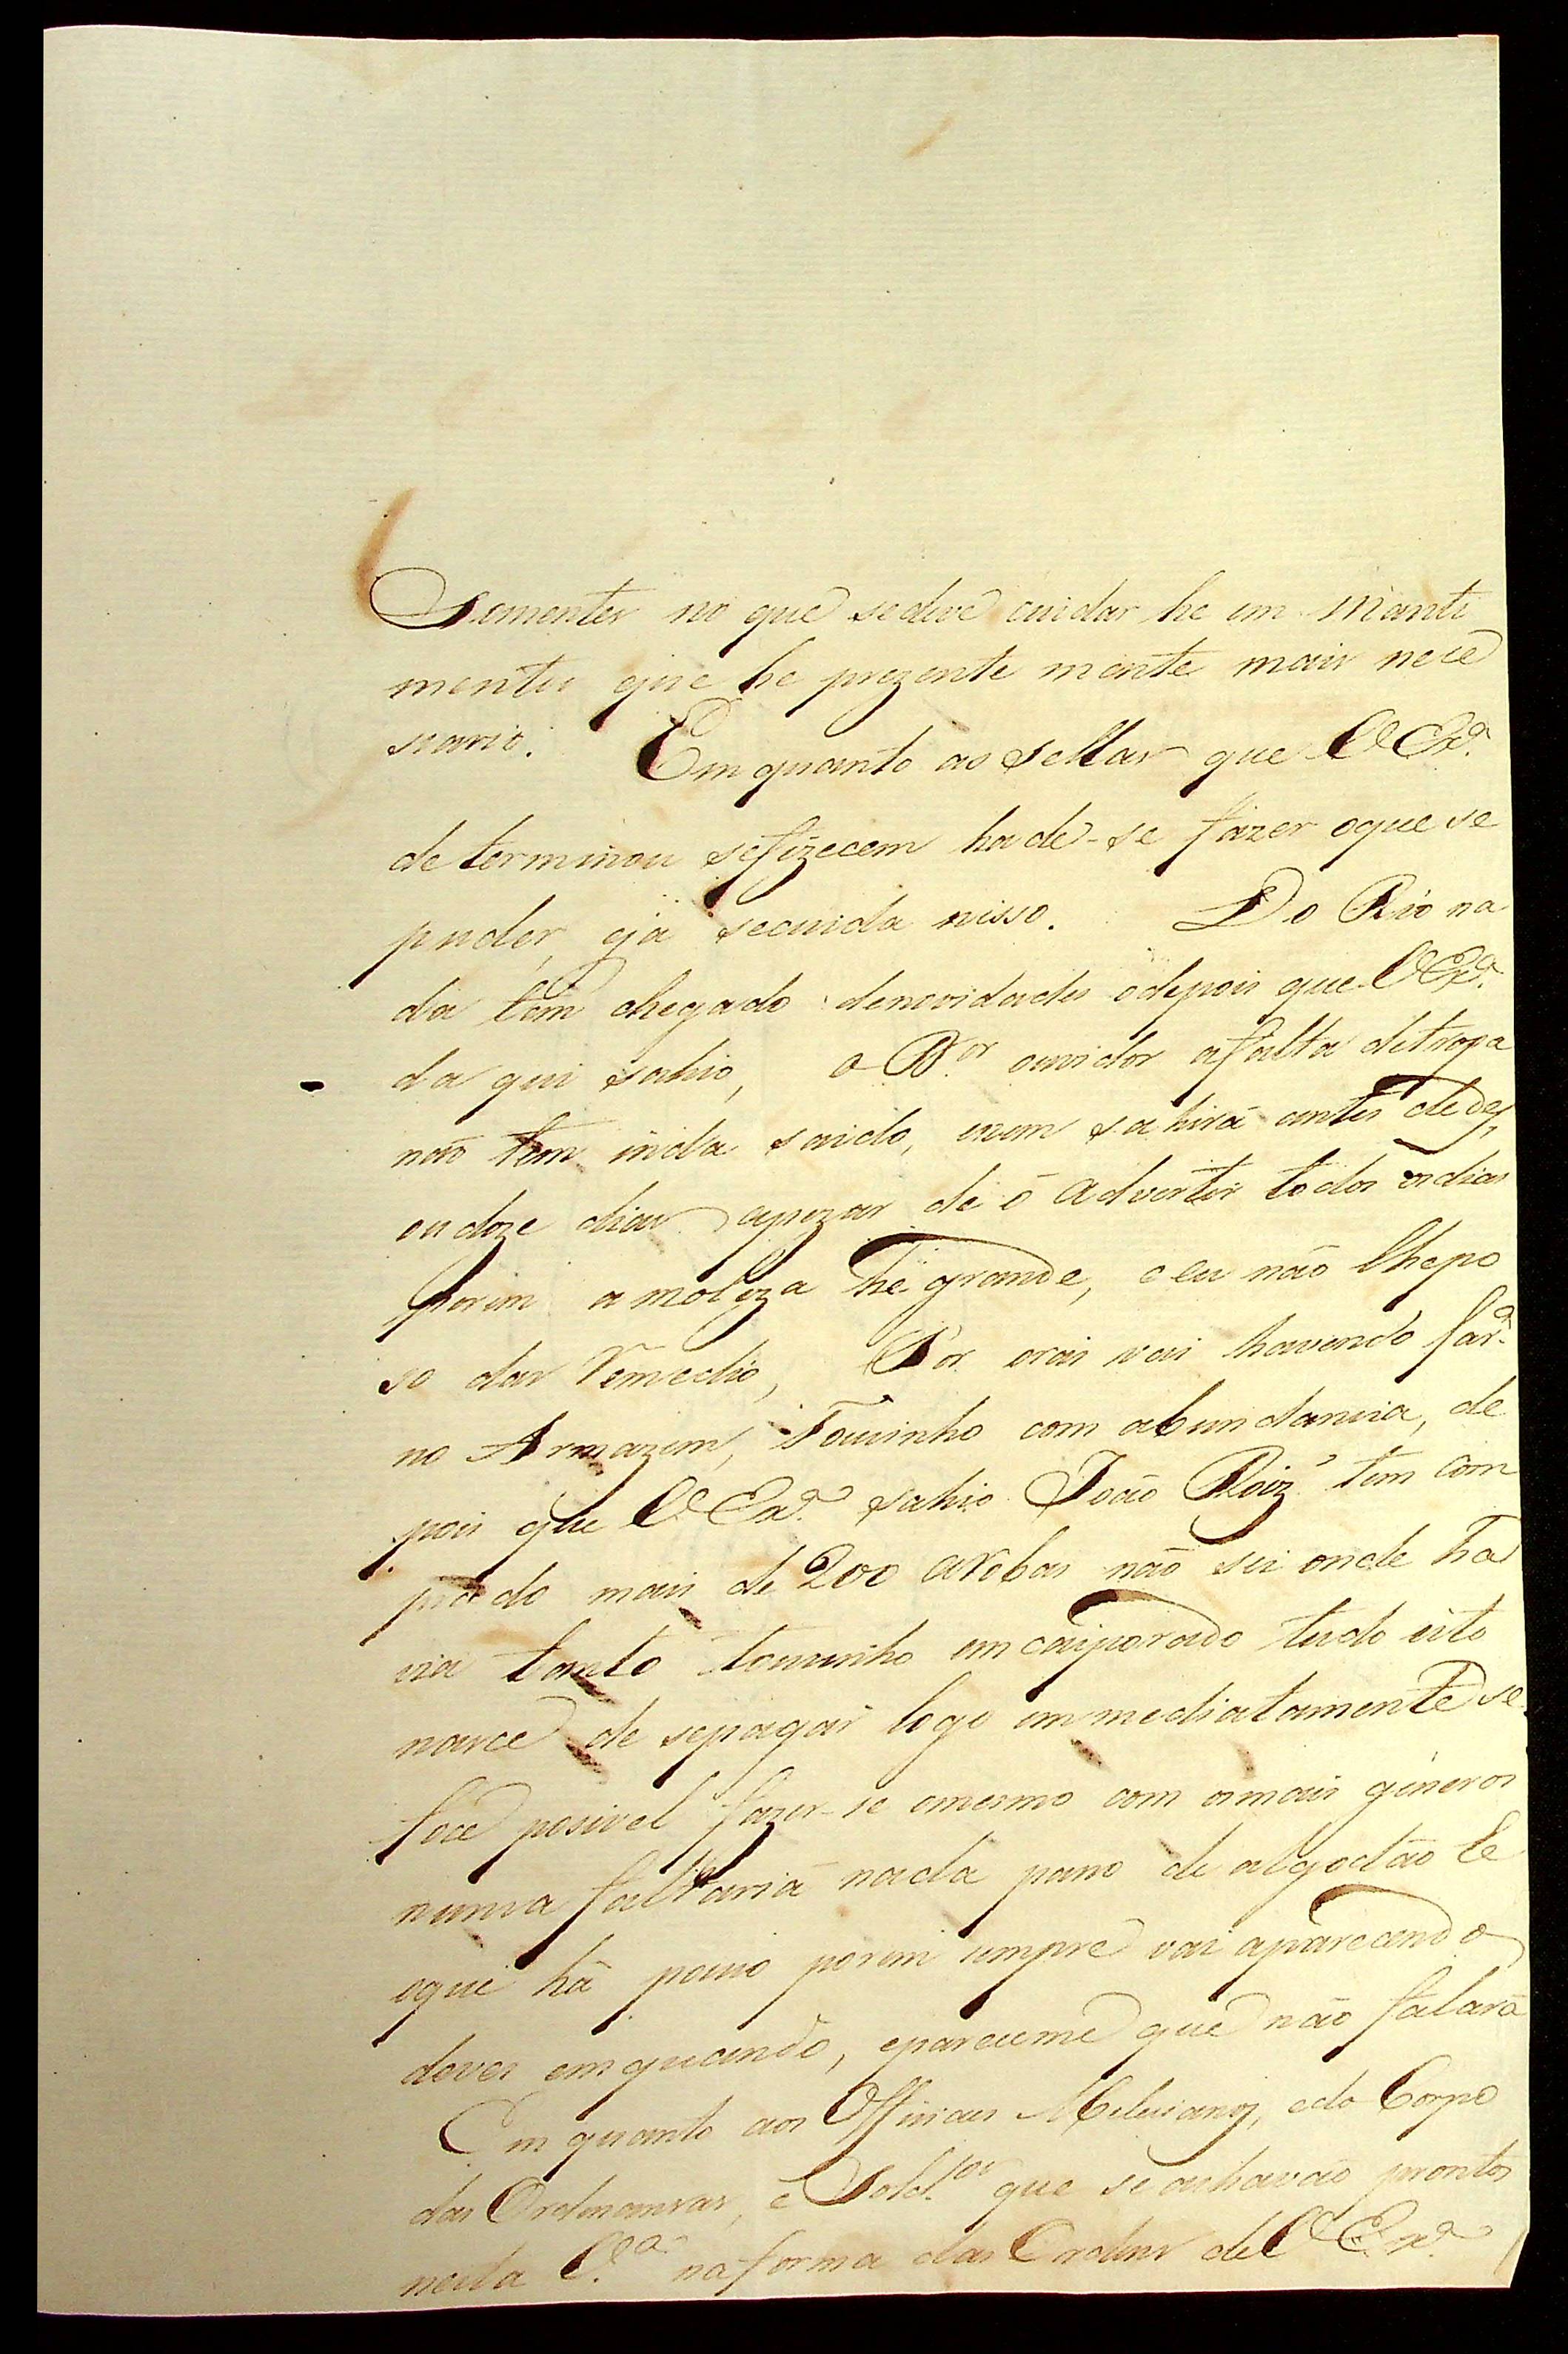 Somentes no que sedeve cuidar he em Manti
mentos que he prezente mente mais nece
sario. Em quanto as Sellas que V Exª.
de terminou sefizecem hade-se fazer oque se
puder, eja secuida nisso. Do Rio na
da tem chegado denovidades edepois que V Exª.
da qui sahio, o Dor. ouvidor afalta detropa
não tem inda saido, enem sahirá antes dedes,
oudoze dias apezar de ó advertir todos osdias
porem amoleza hé grande, e eu não lhepo
so dar Remedio, Por orai vai havendo farª.
no Armazem, Toucinho com abundancia, de
pois que V Exª. sahio João Roiz' tem com
prado mais de 200 arobas não sei onde ha
via tanto toucinho emcaiporado tudo isto
narce de sepagar logo immediatamente se
foce posivel fazer-se omesmo com osmais géneros
nunca faltariá nada pano de algodão hé
oque há pouco porem sempre vai aparecendo
dever emquando, epareceme que não falará
Em quanto aos Officiaes Melicianos, edo Corpo
das Ordenanças, e Sold.os que se achavão prontos
nesta V.ª na forma das Ordens de V Exª.